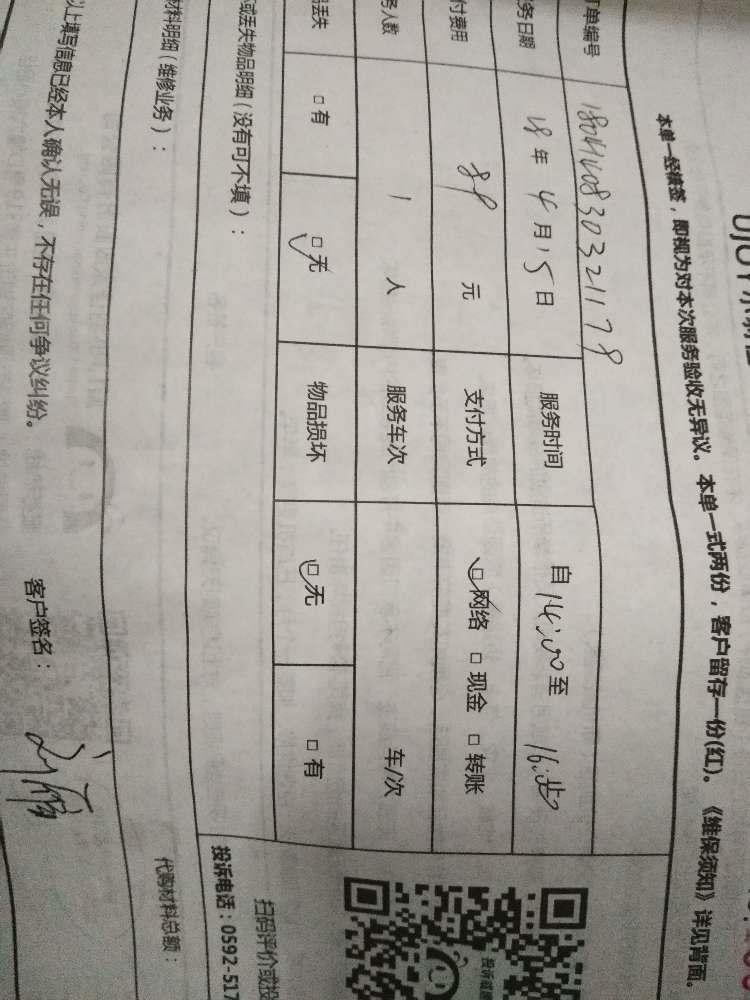 本单一经横签，即视为对本次服务验收无异议。本单一式两份，客户留存一份(红)。《维保须知》详见背面。
订单编号 18041408303211178
务日期 18年4月15日 服务时间 自14:00至16:
付费用 89元 支付方式 □网络 □现金 □转账
务人数 1人 服务车次 车/次
丢失 □有 □无 物品损坏 □无 □有
或丢失物品明细（没有可不填）：
材料明细（维修业务）： 代购材料总额：
以上填写信息已经本人确认无误，不存在任何争议纠纷。 客户签名：
扫码评价或投
投诉电话：0592-517